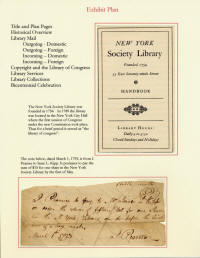 Exhibit Plan
Title and Plan Pages
Historical Overview
Library Mail
Outgoing - Domestic
Outgoing - Foreign
Incoming - Domestic
Incoming - Foreign
Copyright and the Library of Congress
Library Services
Library Collections
Bicentennial Celebration
NEW YORK
Society Library
Founded 1754
53 East Seventy-ninth Street
HANDBOOK
LIBRARY HOURS
Daily 9 to 5:30
Closed Sundays and Holidays
The New York Society Library was
founded in 1754. In 1789 the library
was located in the New York City Hall
where the first session of Congress
under the new Constitution took place.
Thus for a brief period it served as "the
library of congress".
The note below, dated March 1, 1793, is from J.
Pearsee to Isaac L. Kipp. It promises to pay the
sum of $10 for one share in the New York
Society Library by the first of May.